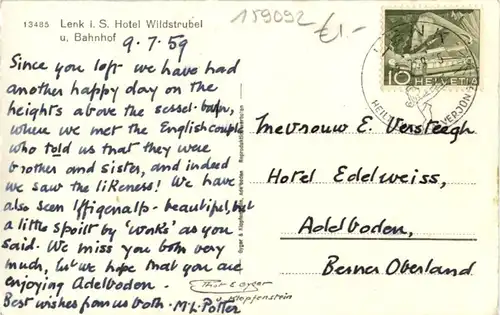 13485 Lenk i. S. Hotel Wildstrubel
u. Bahnhof
159092
€1.-
9.7.59
Since you left we have had
another happy day on the
heights above the sessel-bahn,
where we met the English couple
who told us that they were
brother and sister, and indeed
we saw the likeness! We have
also seen Iffigenalp - beautiful, but
a little spoilt by 'works' as you
said. We miss you both very
much, but we hope that you are
enjoying Adelboden.
Best wishes from us both. M.L. Potter
Phot E Gyger
u. Klopfenstein
10
HELVETIA
Mevrouw E. Versteegh
Hotel Edelweiss,
Adelboden,
Berner Oberland